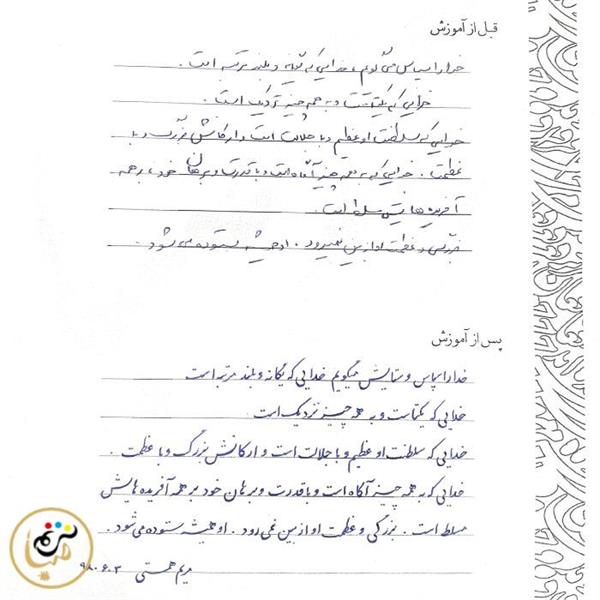 قبل از آموزش
خدا را سپاس می‌گویم، خدایی که یگانه و بلند مرتبه است.
خدایی که یکتاست و به همه چیز نزدیک است.
خدایی که سلطنت او عظیم و با جلالت است و ارکانش بزرگ و با
عظمت. خدایی که به همه چیز آگاه است و با قدرت و برهان خود بر همه
آفریده‌هایش مسلط است.
بزرگی و عظمت او از بین نمی‌رود. او همیشه ستوده می‌شود.
پس از آموزش
خدا را سپاس و ستایش میگویم خدایی که یگانه و بلند مرتبه است
خدایی که یکتاست و به همه چیز نزدیک است
خدایی که سلطنت او عظیم و با جلالت است و ارکانش بزرگ و با عظمت.
خدایی که به همه چیز آگاه است و با قدرت و برهان خود بر همه آفریده‌هایش
مسلط است. بزرگی و عظمت او از بین نمی‌رود. او همیشه ستوده می‌شود.
مریم همتی ۹۸.۶.۳